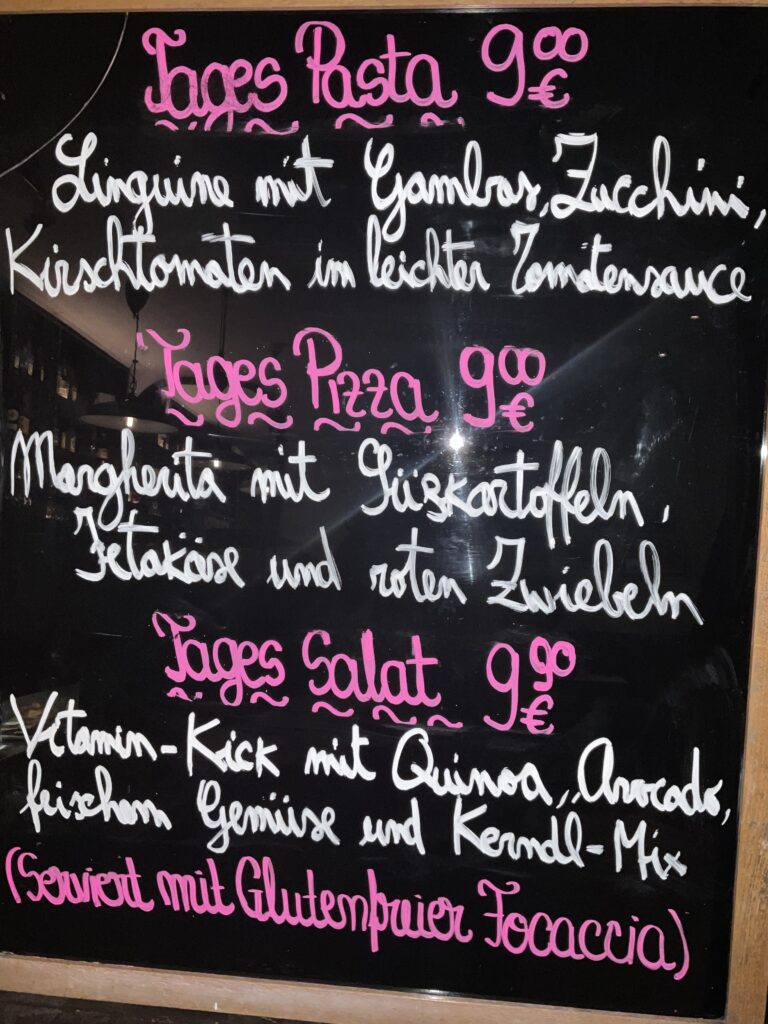 Tages Pasta 9⁰⁰ €
Linguine mit Gambas, Zucchini,
Kirschtomaten in leichter Tomatensauce
Tages Pizza 9⁰⁰ €
Margherita mit Süßkartoffeln,
Fetakäse und roten Zwiebeln
Tages Salat 9⁹⁰ €
Vitamin-Kick mit Quinoa, Avocado,
frischem Gemüse und Kerndl-Mix
(Serviert mit Glutenfreier Focaccia)